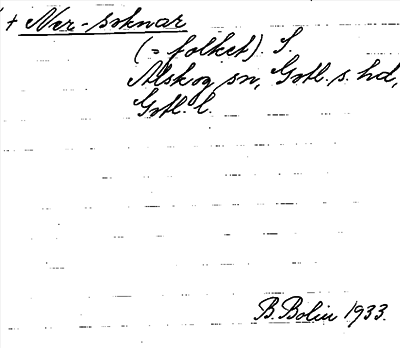 + Ner-soknar
(= folket) S.
Alskog sn, Gotl. s. hd,
Gotl. l.
B. Bolin 1933.